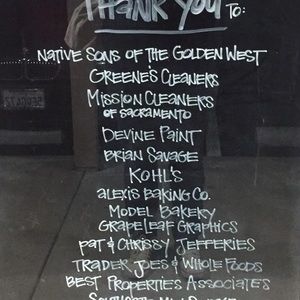 THANK YOU TO:
NATIVE SONS OF THE GOLDEN WEST
GREENES CLEANERS
MISSION CLEANERS
OF SACRAMENTO
DEVINE PAINT
BRIAN SAVAGE
KOHL'S
ALEXIS BAKING CO.
MODEL BAKERY
GRAPELEAF GRAPHICS
PAT & CHRISSY JEFFERIES
TRADER JOES & WHOLE FOODS
BEST PROPERTIES ASSOCIATES